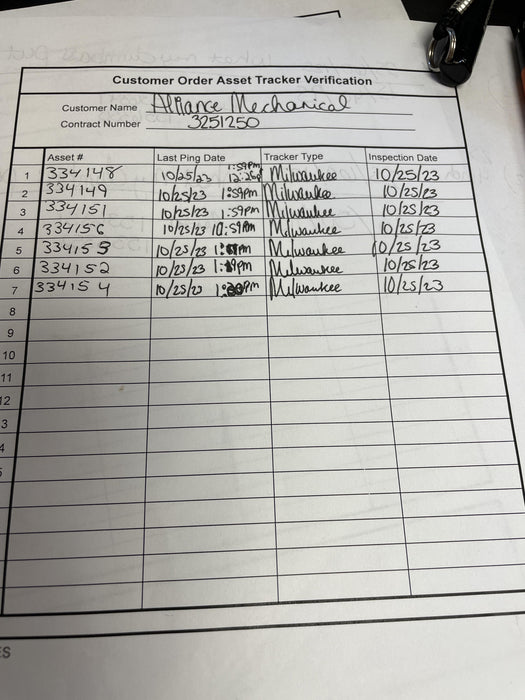 Customer Order Asset Tracker Verification
Customer Name Alliance Mechanical
Contract Number 3251250
Asset # Last Ping Date Tracker Type Inspection Date
1 334148 10/25/23 1:59pm Milwaukee 10/25/23
2 334149 10/25/23 1:59pm Milwaukee 10/25/23
3 334151 10/25/23 1:59pm Milwaukee 10/25/23
4 334156 10/25/23 10:59AM Milwaukee 10/25/23
5 334153 10/25/23 Milwaukee 10/25/23
6 334152 10/25/23 Milwaukee 10/25/23
7 334154 10/25/23 Milwaukee 10/25/23
8
9
10
11
12
3
4
5
ES